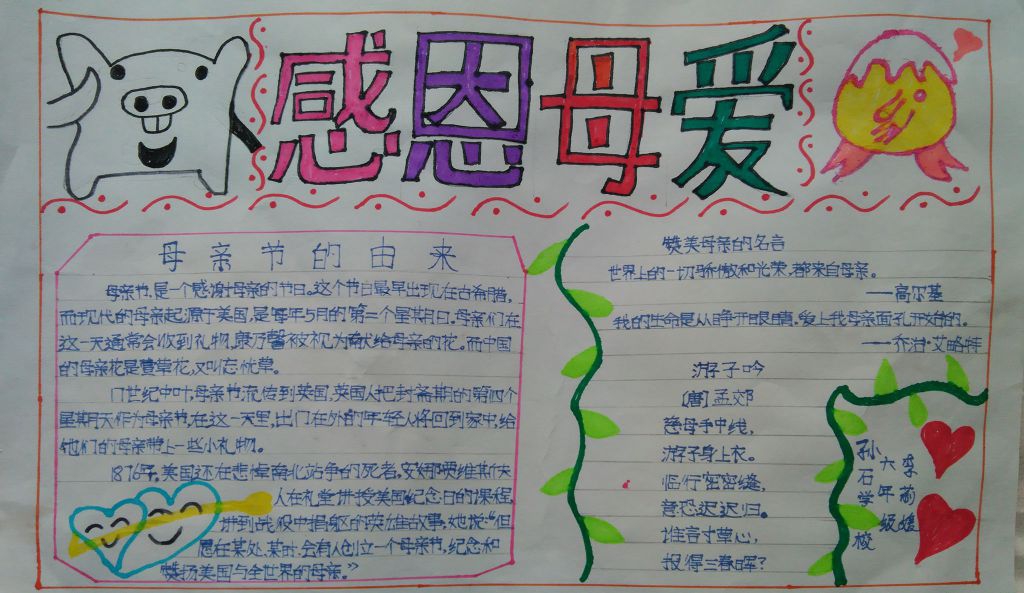 感恩母爱
母亲节的由来
母亲节,是一个感谢母亲的节日。这个节日最早出现在古希腊,
而现代的母亲起源于美国,是每年5月的第二个星期日。母亲们在
这一天通常会收到礼物,康乃馨被视为献给母亲的花。而中国
的母亲花是萱草花,又叫忘忧草。
17世纪中叶,母亲节流传到英国,英国人把封斋期的第四个
星期天作为母亲节,在这一天里,出门在外的年轻人将回到家中,给
他们的母亲带上一些小礼物。
1876年,美国还在悲悼南北站争的死者,安娜贾维斯夫
人在礼堂讲授美国纪念日的课程,
讲到战役中捐躯的英雄故事,她说:“但
愿在某处,某时,会有人创立一个母亲节,纪念和
赞扬美国与全世界的母亲。”
赞美母亲的名言
世界上的一切骄傲和光荣,都来自母亲。
——高尔基
我的生命是从睁开眼睛,爱上我母亲面孔开始的。
——乔治·艾略特
游子吟
[唐]孟郊
慈母手中线,
游子身上衣。
临行密密缝,
意恐迟迟归。
谁言寸草心,
报得三春晖?
孙石学校
六年级
李萌媛